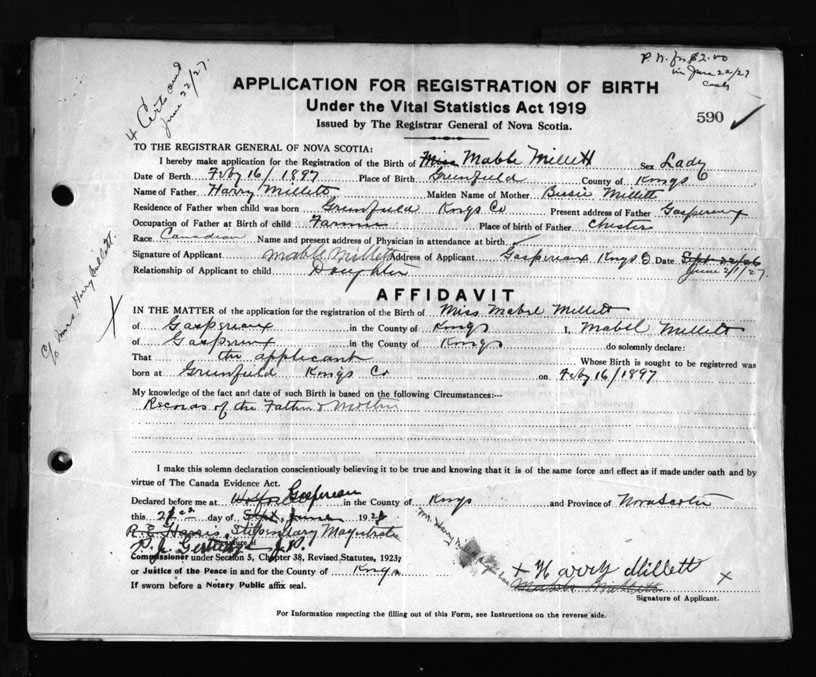 4 Certs and
June 22/27.
P.N. for $2.00
in June 22/27
APPLICATION FOR REGISTRATION OF BIRTH
Under the Vital Statistics Act 1919
Issued by The Registrar General of Nova Scotia.
590
TO THE REGISTRAR GENERAL OF NOVA SCOTIA:
I hereby make application for the Registration of the Birth of Miss Mable Millett Sex Lady
Date of Birth Feby 16/1897 Place of Birth Greenfield County of Kings Co
Name of Father Harry Millett Maiden Name of Mother Bessie Millett
Residence of Father when child was born Greenfield Kings Co Present address of Father Gaspereaux
Occupation of Father at Birth of child Farmer Place of birth of Father Chester
Race Canadian Name and present address of Physician in attendance at birth
Signature of Applicant Mable Millett Address of Applicant Gaspereaux Kings Co Date Sept 22/26
June 21/27.
Relationship of Applicant to child Daughter
c/o Mrs Harry Millett.
AFFIDAVIT
IN THE MATTER of the application for the registration of the Birth of Miss Mabel Millett
of Gaspereaux in the County of Kings I, Mabel Millett
of Gaspereaux in the County of Kings do solemnly declare:
That the applicant Whose Birth is sought to be registered was
born at Greenfield Kings Co on Feby 16/1897
My knowledge of the fact and date of such Birth is based on the following Circumstances:--
Records of the Father & Mother
I make this solemn declaration conscientiously believing it to be true and knowing that it is of the same force and effect as if made under oath and by
virtue of The Canada Evidence Act.
Declared before me at Gaspereau in the County of Kings and Province of Nova Scotia
this day of Sept, June 192
R. E. Harris, Stipendiary Magistrate
J.P.
Commissioner under Section 5, Chapter 38, Revised Statutes, 1923,
or Justice of the Peace in and for the County of Kings
If sworn before a Notary Public affix seal.
x Harry Millett x
Signature of Applicant.
For Information respecting the filling out of this Form, see Instructions on the reverse side.